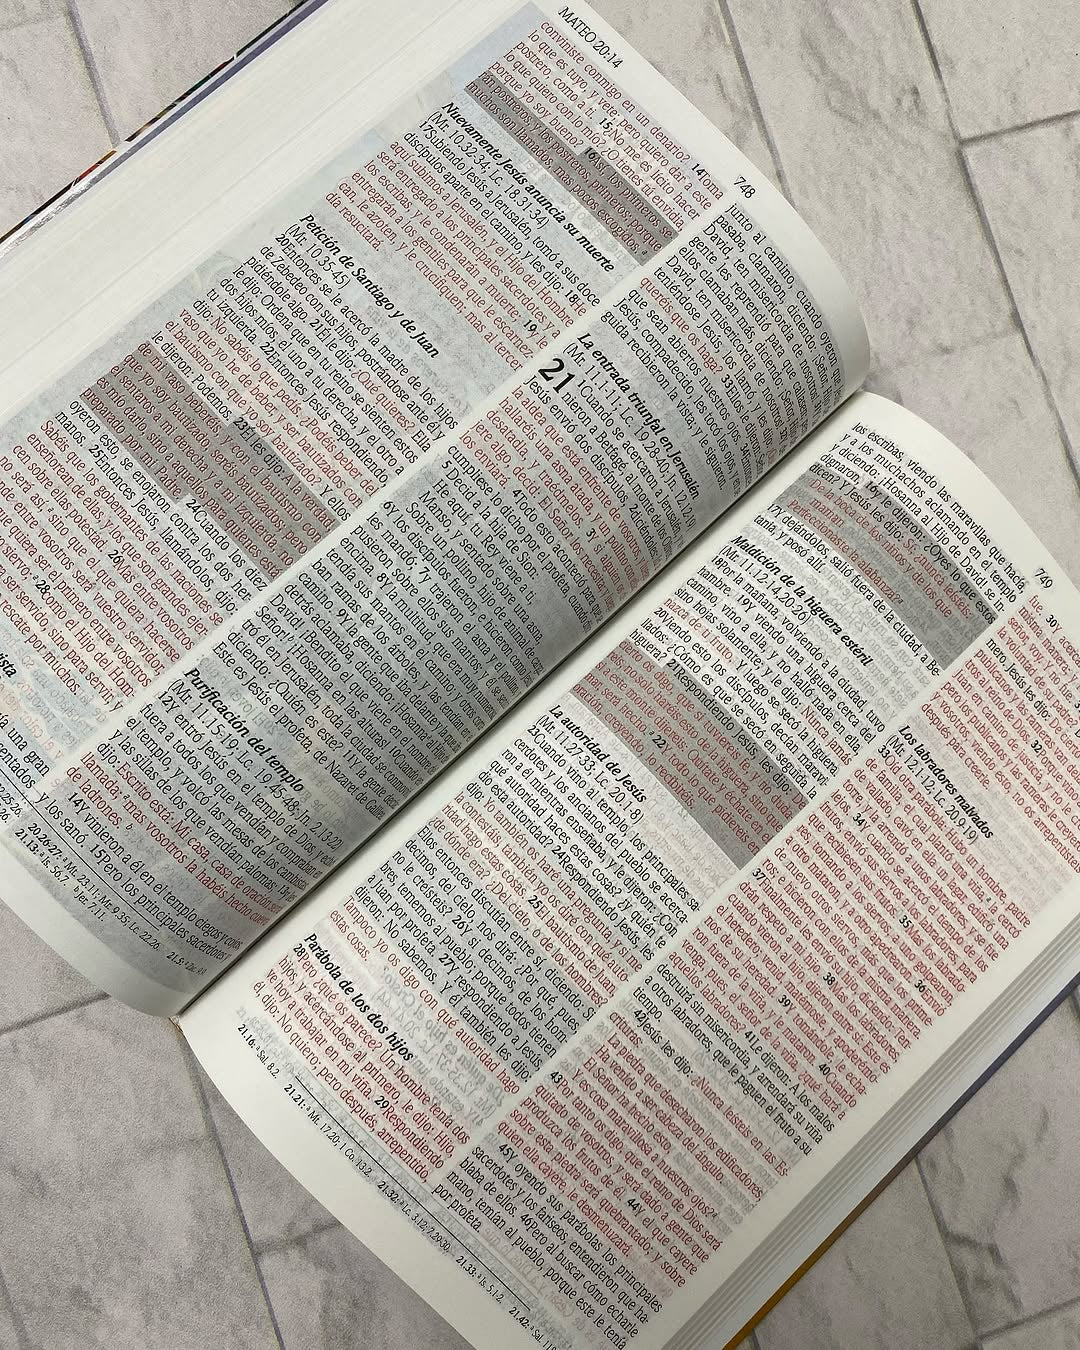 MATEO 20:14
748
conviniste conmigo en un denario? 14Toma
lo que es tuyo, y vete; pero quiero dar a este
postrero, como a ti. 15¿No me es lícito hacer
lo que quiero con lo mío? ¿O tienes tú envidia,
porque yo soy bueno? 16Así, los primeros se-
rán postreros, y los postreros, primeros; porque
muchos son llamados, mas pocos escogidos.
Nuevamente Jesús anuncia su muerte
(Mr. 10.32-34; Lc. 18.31-34)
17Subiendo Jesús a Jerusalén, tomó a sus doce
discípulos aparte en el camino, y les dijo: 18He
aquí subimos a Jerusalén, y el Hijo del Hombre
será entregado a los principales sacerdotes y a
los escribas, y le condenarán a muerte; 19y le
entregarán a los gentiles para que le escarnez-
can, le azoten, y le crucifiquen; mas al tercer
día resucitará.
Petición de Santiago y de Juan
(Mr. 10.35-45)
20Entonces se le acercó la madre de los hijos
de Zebedeo con sus hijos, postrándose ante él y
pidiéndole algo. 21Él le dijo: ¿Qué quieres? Ella
le dijo: Ordena que en tu reino se sienten estos
dos hijos míos, el uno a tu derecha, y el otro a
tu izquierda. 22Entonces Jesús respondiendo,
dijo: No sabéis lo que pedís. ¿Podéis beber del
vaso que yo he de beber, y ser bautizados con
el bautismo con que yo soy bautizado? Y ellos
le dijeron: Podemos. 23Él les dijo: A la verdad,
de mi vaso beberéis, y con el bautismo con
que yo soy bautizado, seréis bautizados; pero
el sentaros a mi derecha y a mi izquierda, no
es mío darlo, sino a aquellos para quienes está
preparado por mi Padre. 24Cuando los diez
oyeron esto, se enojaron contra los dos her-
manos. 25Entonces Jesús, llamándolos, dijo:
Sabéis que los gobernantes de las naciones se
enseñorean de ellas, y los que son grandes ejer-
cen sobre ellas potestad. 26Mas entre vosotros
no será así, sino que el que quiera hacerse
grande entre vosotros será vuestro servidor,
junto al camino, cuando oyeron que Jesús
pasaba, clamaron, diciendo: ¡Señor, Hijo de
David, ten misericordia de nosotros! 31Y la
gente les reprendió para que callasen; pero
ellos clamaban más, diciendo: ¡Señor, Hijo de
David, ten misericordia de nosotros! 32Y de-
teniéndose Jesús, los llamó, y les dijo: ¿Qué
queréis que os haga? 33Ellos le dijeron: Señor,
que sean abiertos nuestros ojos. 34Entonces
Jesús, compadecido, les tocó los ojos, y en se-
guida recibieron la vista; y le siguieron.
La entrada triunfal en Jerusalén
(Mr. 11.1-11; Lc. 19.28-40; Jn. 12.12-19)
21 1Cuando se acercaron a Jerusalén, y
vinieron a Betfagé, al monte de los Olivos,
Jesús envió dos discípulos, 2diciéndoles: Id a
la aldea que está enfrente de vosotros, y luego
hallaréis una asna atada, y un pollino con ella;
desatadla, y traédmelos. 3Y si alguien os di-
jere algo, decid: El Señor los necesita; y luego
los enviará. 4Todo esto aconteció para que se
cumpliese lo dicho por el profeta, cuando dijo:
5Decid a la hija de Sion:
He aquí, tu Rey viene a ti,
Manso, y sentado sobre una asna,
Sobre un pollino, hijo de animal de carga.
6Y los discípulos fueron, e hicieron como Jesús
les mandó; 7y trajeron el asna y el pollino, y
pusieron sobre ellos sus mantos; y él se sentó
encima. 8Y la multitud, que era muy numerosa,
tendía sus mantos en el camino; y otros corta-
ban ramas de los árboles, y las tendían en el
camino. 9Y la gente que iba delante y la que iba
detrás aclamaba, diciendo: ¡Hosanna al Hijo de
David! ¡Bendito el que viene en el nombre del
Señor! ¡Hosanna en las alturas! 10Cuando en-
tró él en Jerusalén, toda la ciudad se conmovió,
diciendo: ¿Quién es este? 11Y la gente decía:
Este es Jesús el profeta, de Nazaret de Galilea.
Purificación del templo
(Mr. 11.15-19; Lc. 19.45-48; Jn. 2.13-22)
12Y entró Jesús en el templo de Dios, y echó
fuera a todos los que vendían y compraban en
el templo, y volcó las mesas de los cambistas,
y las sillas de los que vendían palomas; 13y les
dijo: Escrito está: Mi casa, casa de oración será
llamada; mas vosotros la habéis hecho cueva
de ladrones.
14Y vinieron a él en el templo ciegos y cojos,
y los sanó. 15Pero los principales sacerdotes y
749
los escribas, viendo las maravillas que hacía,
y a los muchachos aclamando en el templo
y diciendo: ¡Hosanna al Hijo de David! se in-
dignaron, 16y le dijeron: ¿Oyes lo que estos
dicen? Y Jesús les dijo: Sí; ¿nunca leísteis:
De la boca de los niños y de los que maman
Perfeccionaste la alabanza?
17Y dejándolos, salió fuera de la ciudad, a Be-
tania, y posó allí.
Maldición de la higuera estéril
(Mr. 11.12-14, 20-26)
18Por la mañana, volviendo a la ciudad, tuvo
hambre. 19Y viendo una higuera cerca del
camino, vino a ella, y no halló nada en ella,
sino hojas solamente; y le dijo: Nunca jamás
nazca de ti fruto. Y luego se secó la higuera.
20Viendo esto los discípulos, decían maravi-
llados: ¿Cómo es que se secó en seguida la
higuera? 21Respondiendo Jesús, les dijo: De
cierto os digo, que si tuviereis fe, y no dudareis,
no solo haréis esto de la higuera, sino que si
a este monte dijereis: Quítate y échate en el
mar, será hecho. 22Y todo lo que pidiereis en
oración, creyendo, lo recibiréis.
La autoridad de Jesús
(Mr. 11.27-33; Lc. 20.1-8)
23Cuando vino al templo, los principales sa-
cerdotes y los ancianos del pueblo se acerca-
ron a él mientras enseñaba, y le dijeron: ¿Con
qué autoridad haces estas cosas? ¿y quién te
dio esta autoridad? 24Respondiendo Jesús, les
dijo: Yo también os haré una pregunta, y si me
la contestáis, también yo os diré con qué auto-
ridad hago estas cosas. 25El bautismo de Juan,
¿de dónde era? ¿Del cielo, o de los hombres?
Ellos entonces discutían entre sí, diciendo: Si
decimos, del cielo, nos dirá: ¿Por qué, pues,
no le creísteis? 26Y si decimos, de los hom-
bres, tememos al pueblo; porque todos tienen
a Juan por profeta. 27Y respondiendo a Jesús,
dijeron: No sabemos. Y él también les dijo:
Tampoco yo os digo con qué autoridad hago
estas cosas.
Parábola de los dos hijos
28Pero ¿qué os parece? Un hombre tenía dos
hijos, y acercándose al primero, le dijo: Hijo,
ve hoy a trabajar en mi viña. 29Respondiendo
él, dijo: No quiero; pero después, arrepentido,
Los labradores malvados
(Mr. 12.1-12; Lc. 20.9-19)
33Oíd otra parábola: Hubo un hombre, padre
de familia, el cual plantó una viña, la cercó
de vallado, cavó en ella un lagar, edificó una
torre, y la arrendó a unos labradores, y se fue
lejos. 34Y cuando se acercó el tiempo de los
frutos, envió sus siervos a los labradores, para
que recibiesen sus frutos. 35Mas los labrado-
res, tomando a los siervos, a uno golpearon,
a otro mataron, y a otro apedrearon. 36Envió
de nuevo otros siervos, más que los prime-
ros; e hicieron con ellos de la misma manera.
37Finalmente les envió su hijo, diciendo: Ten-
drán respeto a mi hijo. 38Mas los labradores,
cuando vieron al hijo, dijeron entre sí: Este es
el heredero; venid, matémosle, y apoderémo-
nos de su heredad. 39Y tomándole, le echa-
ron fuera de la viña, y le mataron. 40Cuando
venga, pues, el señor de la viña, ¿qué hará a
aquellos labradores? 41Le dijeron: A los malos
destruirá sin misericordia, y arrendará su viña
a otros labradores, que le paguen el fruto a su
tiempo.
42Jesús les dijo: ¿Nunca leísteis en las Es-
crituras:
La piedra que desecharon los edificadores,
Ha venido a ser cabeza del ángulo.
El Señor ha hecho esto,
Y es cosa maravillosa a nuestros ojos?
43Por tanto os digo, que el reino de Dios será
quitado de vosotros, y será dado a gente que
produzca los frutos de él. 44Y el que cayere
sobre esta piedra será quebrantado; y sobre
quien ella cayere, le desmenuzará.
45Y oyendo sus parábolas los principales
sacerdotes y los fariseos, entendieron que ha-
blaba de ellos. 46Pero al buscar cómo echarle
mano, temían al pueblo, porque este le tenía
por profeta.